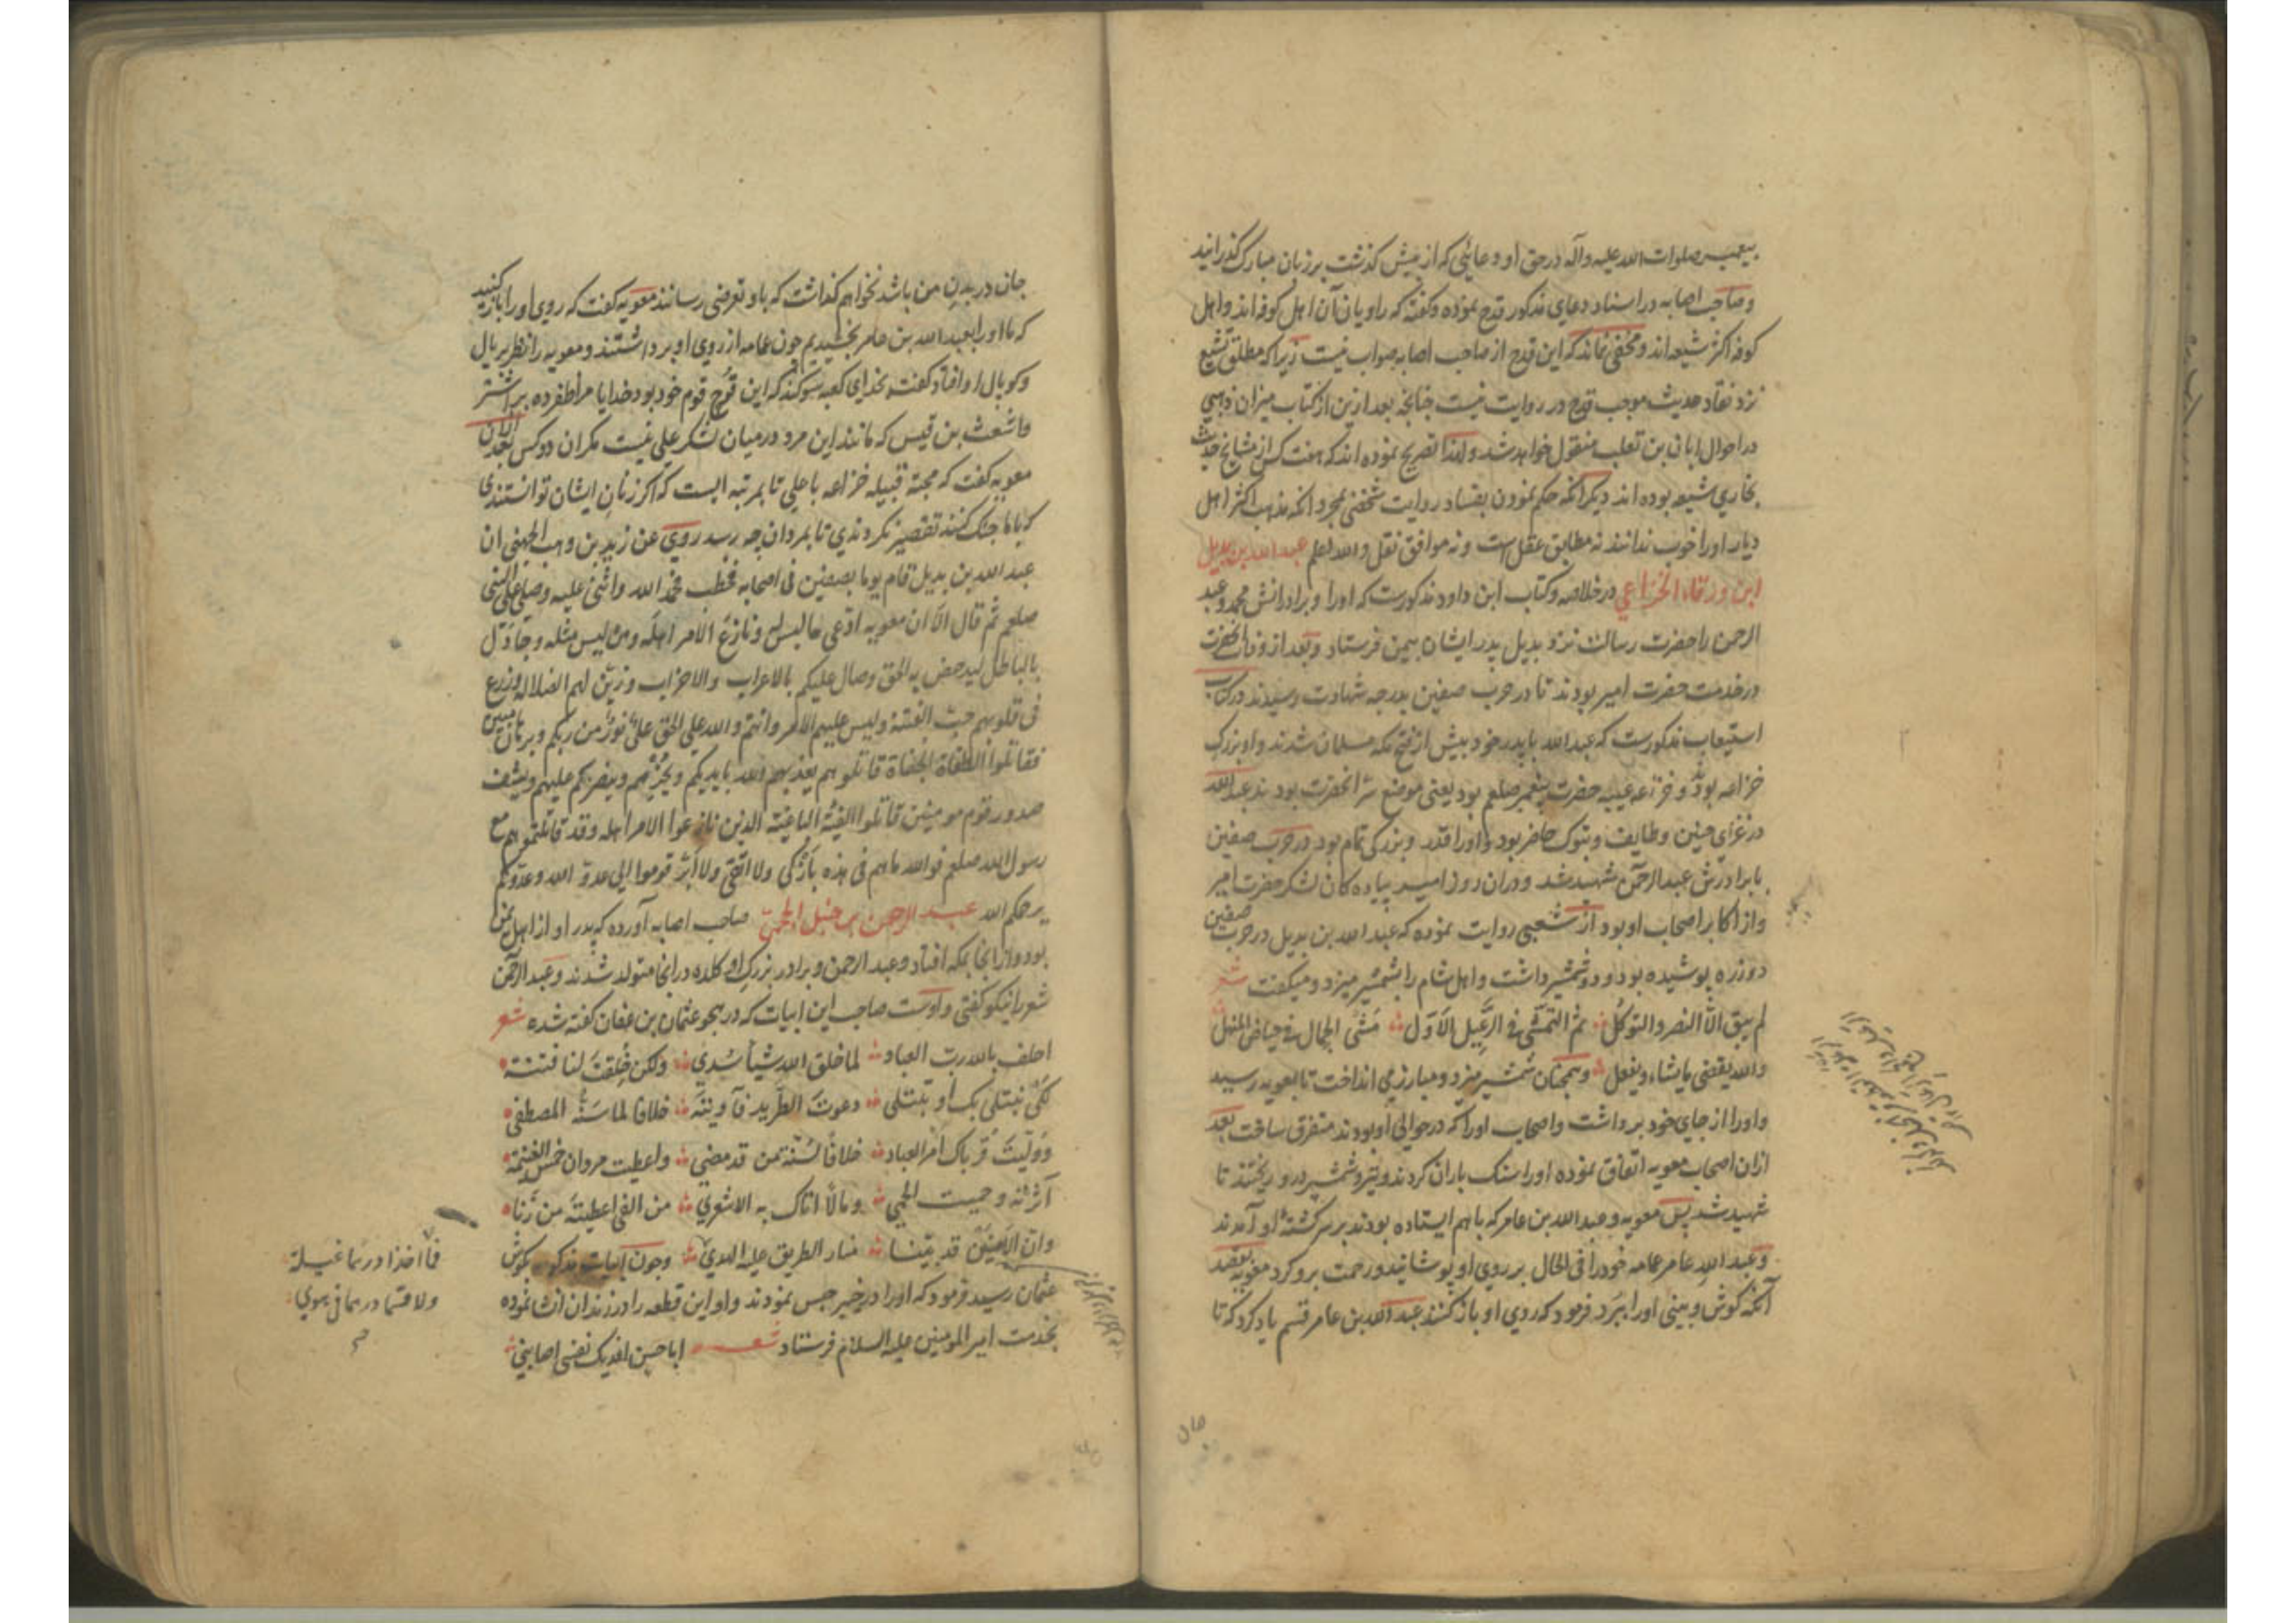 پیغمبر صلوات الله علیه وآله در حق او دعائی که از پیش گذشت بر زبان مبارک گذرانید
وصاحب اصابه در اسناد دعای مذکور قدح نموده وگفته که راویان آن اهل کوفه اند واهل
کوفه اکثر شیعه اند ومخفی نماند که این قدح از صاحب اصابه صواب نیست زیرا که مطلق تشیع
نزد نقاد حدیث موجب قدح در روایت نیست چنانچه بعد ازین از کتاب میزان ذهبی
در احوال ابان بن تغلب منقول خواهد شد ولهذا تصریح نموده اند که هفت کس از مشایخ حدیث
بخاری شیعه بوده اند دیگر آنکه حکم نمودن بفساد روایت شخصی بمجرد آنکه مذهب اکثر اهل
دیار اورا خوب ندانند نه مطابق عقل است ونه موافق نقل والله اعلم عبدالله بن بدیل
ابن ورقاء الخزاعی در خلاصه وکتاب ابن داود مذکورست که اورا وبرادرانش محمد وعبد
الرحمن را حضرت رسالت نزد بدیل پدر ایشان بیمن فرستاد وبعد از وفات آنحضرت
در خدمت حضرت امیر بودند تا در حرب صفین بدرجه شهادت رسیدند در کتاب
استیعاب مذکورست که عبدالله با پدر خود پیش از فتح مکه مسلمان شدند واو بزرگ
خزاعه بود وخزاعه عیبه حضرت پیغمبر صلعم بود یعنی موضع سر آنحضرت بودند عبدالله
در غزای حنین وطایف وتبوک حاضر بود واورا قدر وبزرگی تمام بود در حرب صفین
با برادرش عبدالرحمن شهید شد ودران روز امیر پیاده کان لشکر حضرت امیر
واز اکابر اصحاب او بود از شعبی روایت نموده که عبدالله بن بدیل در حرب صفین
دو زره پوشیده بود ودو شمشیر داشت واهل شام را بشمشیر میزد ومیگفت شعر
لم یبق الا النصر والتوکل ثم التمشی فی الرعیل الاول مشی الجمال فی حیاض المنهل
والله یقضی ما یشاء ویفعل وهمچنان شمشیر میزد ومبارز می انداخت تا بمعویه رسید
واورا از جای خود برداشت واصحاب اورا که در حوالی او بودند متفرق ساخت بعد
ازان اصحاب معویه اتفاق نموده اورا سنک باران کردند وتیر وشمشیر درو ریختند تا
شهید شد پس معویه وعبدالله بن عامر که باهم ایستاده بودند بر سر کشته او آمدند
وعبدالله عامر عمامه خودرا فی الحال بر روی او پوشانید ورحمت برو کرد معویه بقصد
آنکه گوش وبینی اورا ببرد فرمود که روی او باز کنند عبدالله بن عامر قسم یاد کرد که تا
جان در بدن من باشد نخواهم گذاشت که باو تعرضی رسانند معویه گفت که روی اورا باز کنید
که ما اورا بعبدالله بن عامر بخشیدیم چون عمامه از روی او برداشتند ومعویه را نظر بر یال
وکوپال او افتاد گفت بخدای کعبه سوگند که این قوچ قوم خود بود خدایا مرا ظفر ده بر اشتر
واشعث بن قیس که مانند این مرد در میان لشکر علی نیست مگر آن دو کس بعد ازان
معویه گفت که محبة قبیله خزاعه با علی تا بمرتبه ایست که اگر زنان ایشان توانستندی
که با ما جنک کنند تقصیر نکردندی تا بمردان چه رسد روی عن زید بن وهب الجهنی ان
عبدالله بن بدیل قام یوما بصفین فی اصحابه فخطب فحمد الله واثنی علیه وصلی علی النبی
صلعم ثم قال الا ان معویه ادعی ما لیس له ونازع الامر اهله ومن لیس مثله وجادل
بالباطل لیدحض به الحق وصال علیکم بالاعراب والاحزاب وزین لهم الضلالة وزرع
فی قلوبهم حب الفتنة ولبس علیهم الامر وانتم والله علی الحق علی نور من ربکم وبرهان مبین
فقاتلوا الطغاة الجفاة قاتلوهم یعذبهم الله بایدیکم ویخزهم وینصرکم علیهم ویشف
صدور قوم مومنین قاتلوا الفئة الباغیة الذین نازعوا الامر اهله وقد قاتلتموهم مع
رسول الله صلعم فوالله ما هم فی هذه بازکی ولا اتقی ولا ابر قوموا الی عدو الله وعدوکم
یرحمکم الله عبدالرحمن بن حنبل الجمحی صاحب اصابه آورده که پدر او از اهل یمن
بود واز آنجا بمکه افتاد وعبدالرحمن وبرادر بزرگ او کلده در آنجا متولد شدند وعبدالرحمن
شعر را نیکو گفتی واوست صاحب این ابیات که در هجو عثمان بن عفان گفته شده شعر
احلف بالله رب العباد لما خلق الله شیأ سدی ولکن خلقت لنا فتنة
لکی نبتلی بک او تبتلی دعوت الطرید فآویته خلافا لما سنه المصطفی
وولیت قرباک امر العباد خلافا لسنة من قد مضی واعطیت مروان خمس الغنیمة
آثرته وحمیت الحمی ومالا اتاک به الاشعری من الفی اعطیته من دنا
وان الامینین قد بینا منار الطریق علیه الهدی وچون ابیات مذکور بگوش
عثمان رسید فرمود که اورا در خیبر حبس نمودند واو این قطعه را در زندان انشا نموده
بخدمت امیر المومنین علیه السلام فرستاد شعر ابا حسن افدیک نفسی اصابنی
فما اخذا درهما غیلة
ولا قسما درهما فی هوی